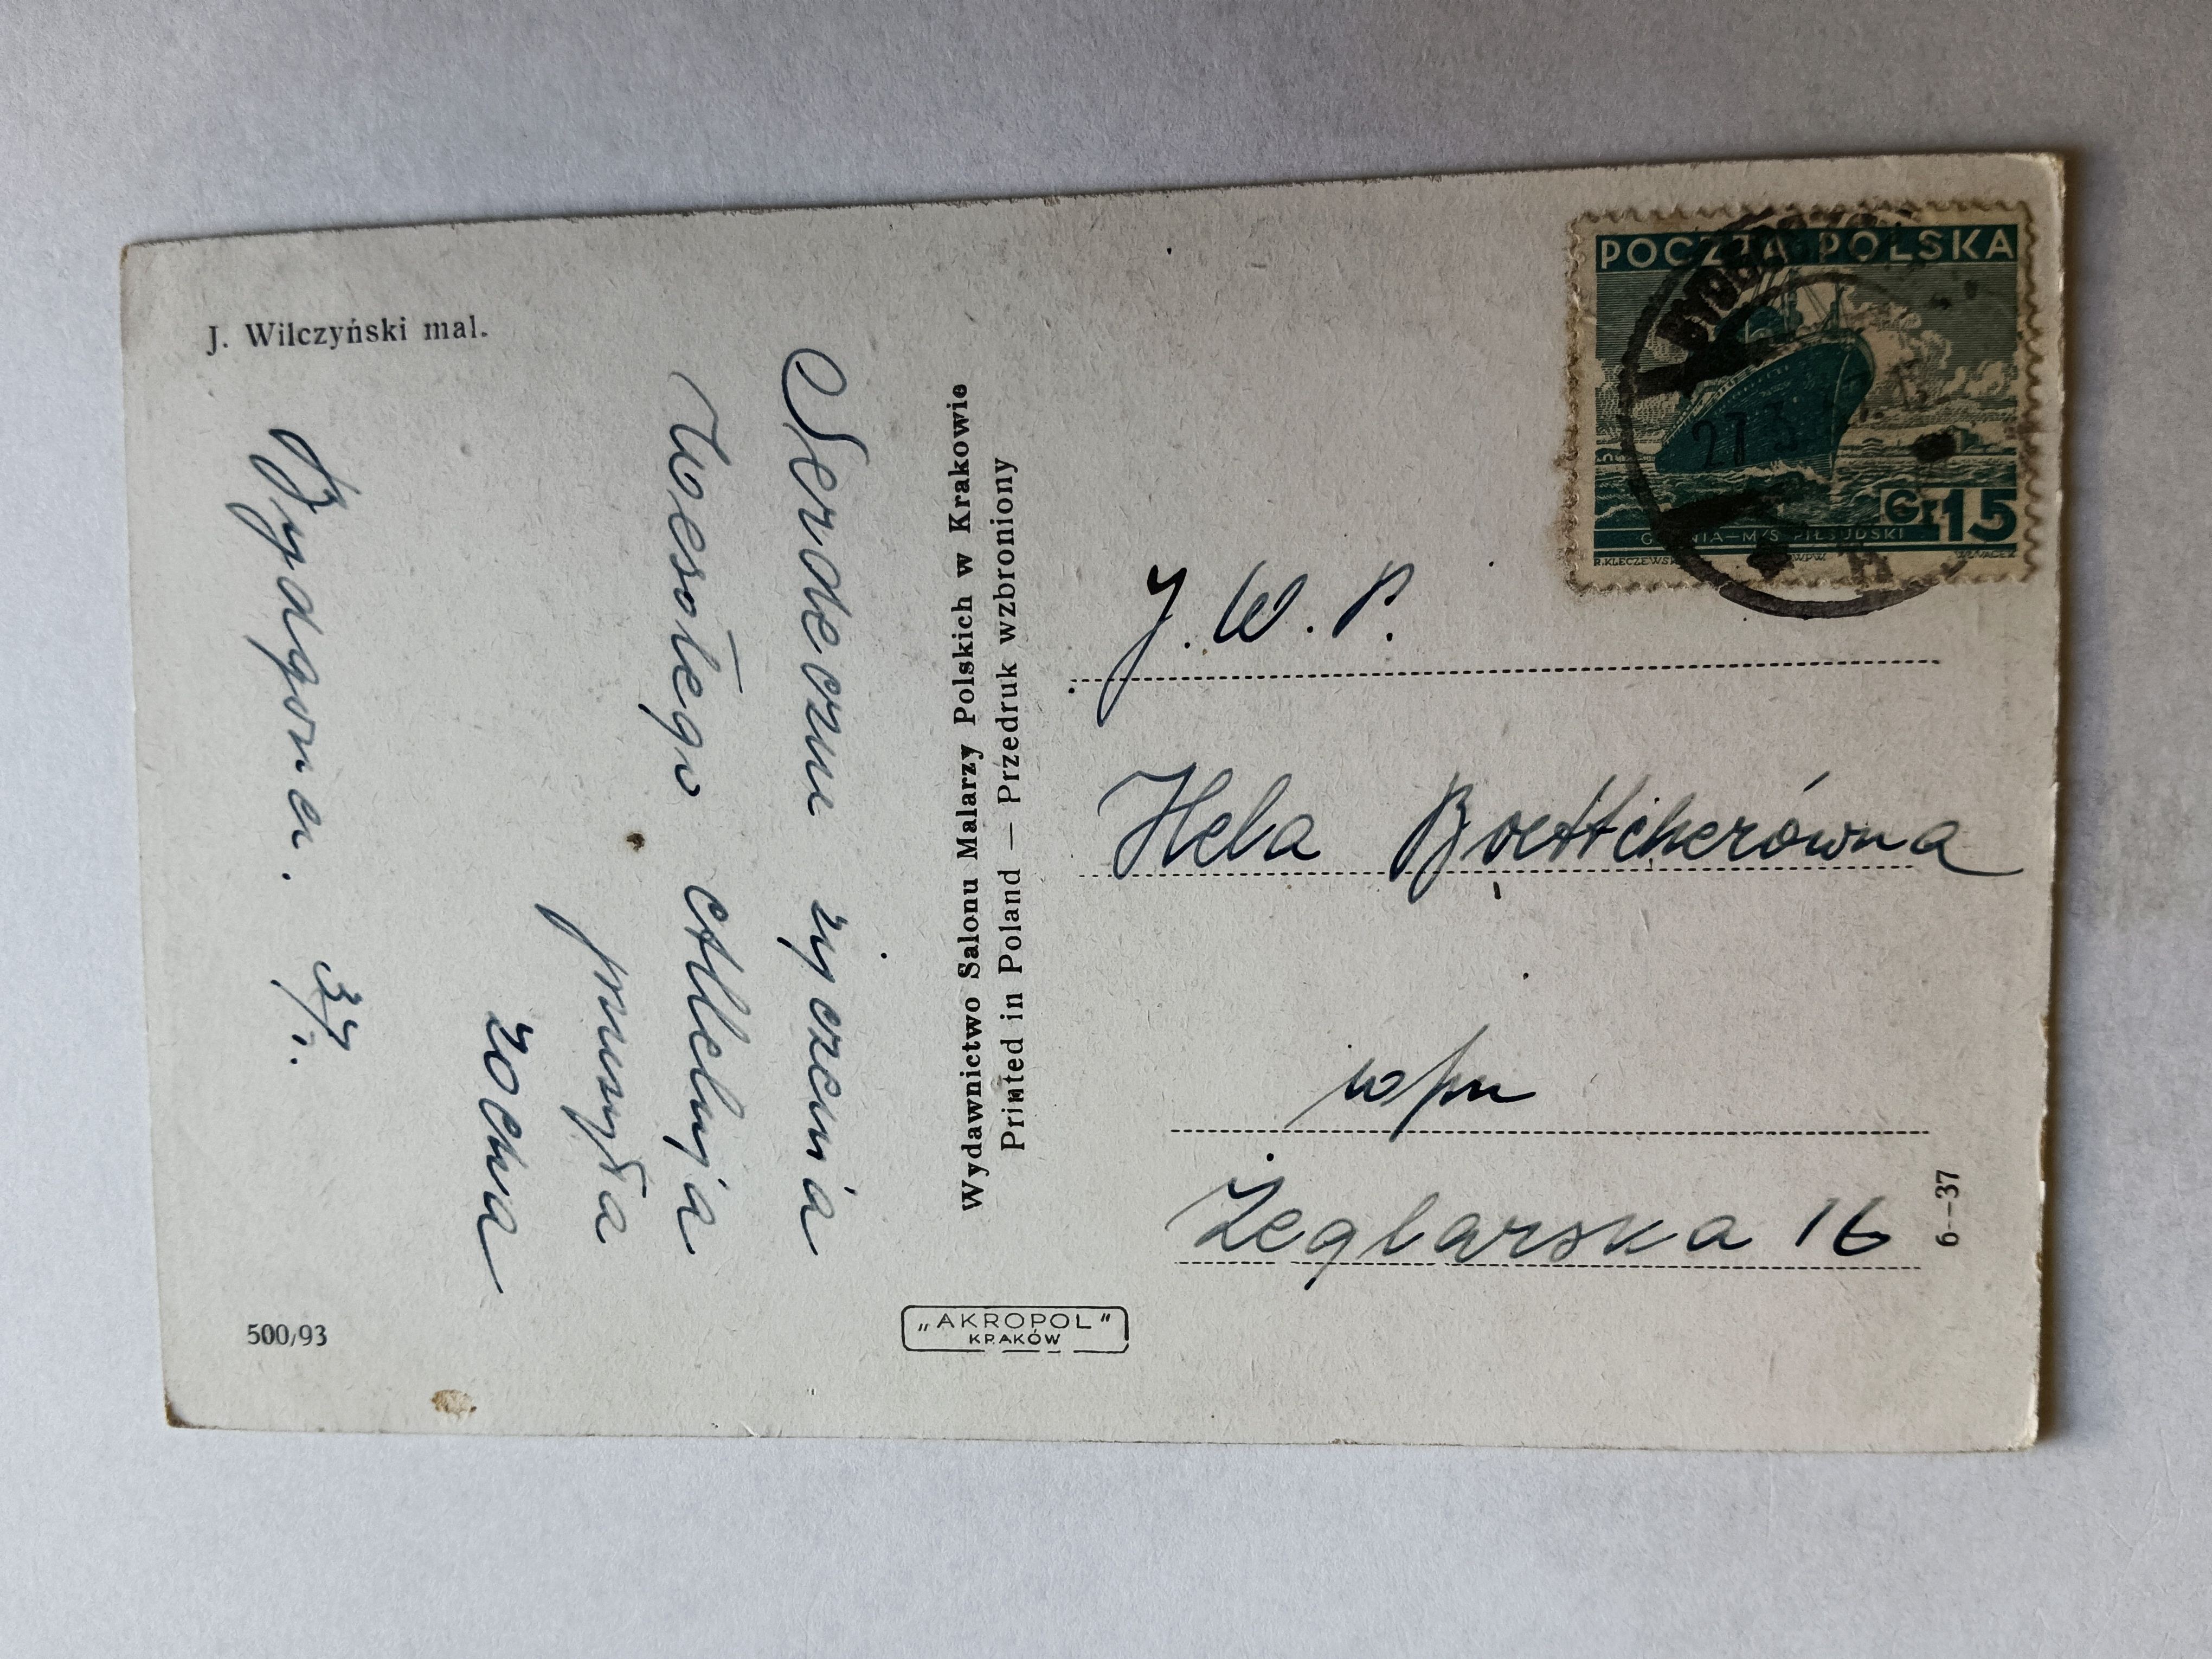 J. Wilczyński mal.
Serdeczne życzenia
Wesołego Alleluja
przesyła
Bydgoszcz. 37.
500/93
Wydawnictwo Salonu Malarzy Polskich w Krakowie
Printed in Poland — Przedruk wzbroniony
„AKROPOL"
KRAKÓW
POCZTA POLSKA
27 3
Gr 15
GDYNIA—M/S PIŁSUDSKI
R.KLECZEWSKI
WPW.
J. W. P.
Hela Boettcherówna
w/m
Żeglarska 16
6—37